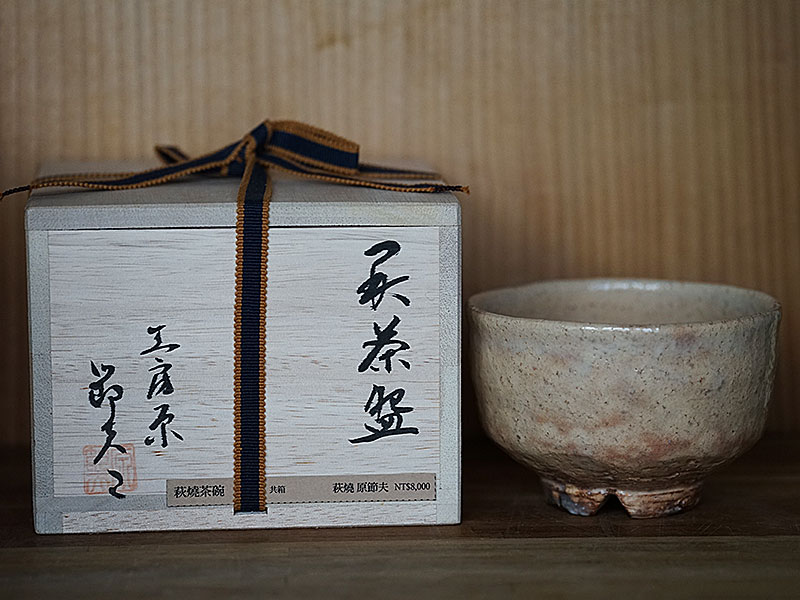 萩茶盌
工房原
節夫
萩燒茶碗 共箱 萩燒 原節夫 NT$8,000